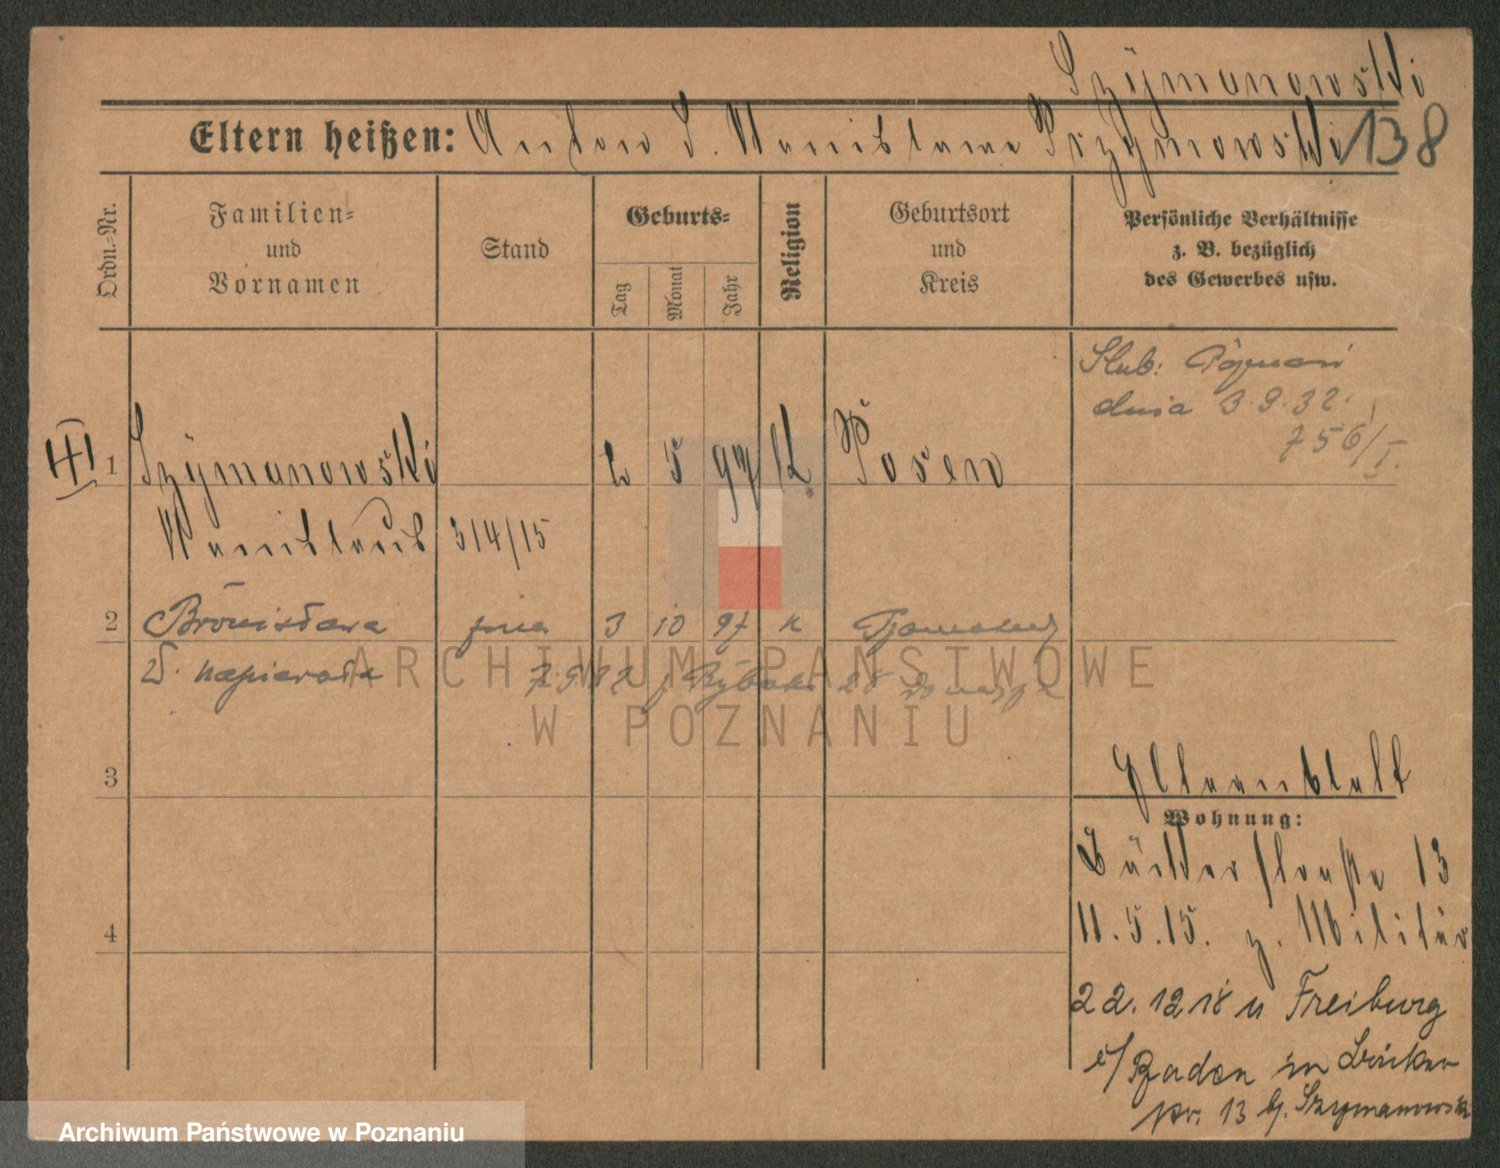 Szymanowski
Eltern heißen: Anton S. Stanislawa Przymowski 138
Ordn.=Nr.
Familien=
und
Vornamen
Stand
Geburts=
Tag
Monat
Jahr
Religion
Geburtsort
und
Kreis
Persönliche Verhältnisse
z. B. bezüglich
des Gewerbes usw.
Ślub: Poznań
dnia 3.9.32.
756/I.
III
1 Szymanowski 2 5 97 K Posen
Stanislaus 314/15
2 Bronisława żona 3 10 97 k
z. Napierała 7.9.32 Rybaki 28
ARCHIWUM PAŃSTWOWE
W POZNANIU
3
Elternblatt
Wohnung:
Bäckerstraße 13
4
11.5.15. z. Militär
22.12.18 v Freiburg
i/Baden in Bäcker
str. 13 b. Szymanowski
Archiwum Państwowe w Poznaniu